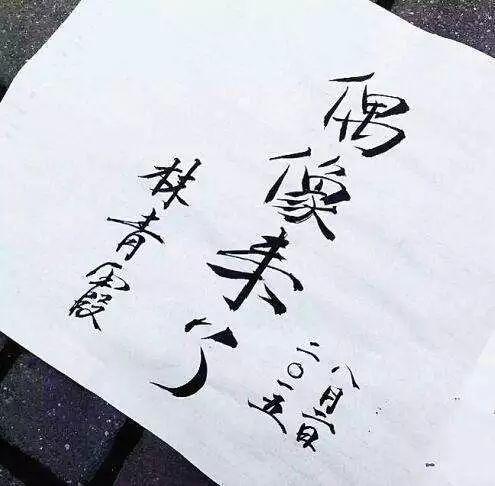 偶像来了
八月二日
二〇一五
林青霞